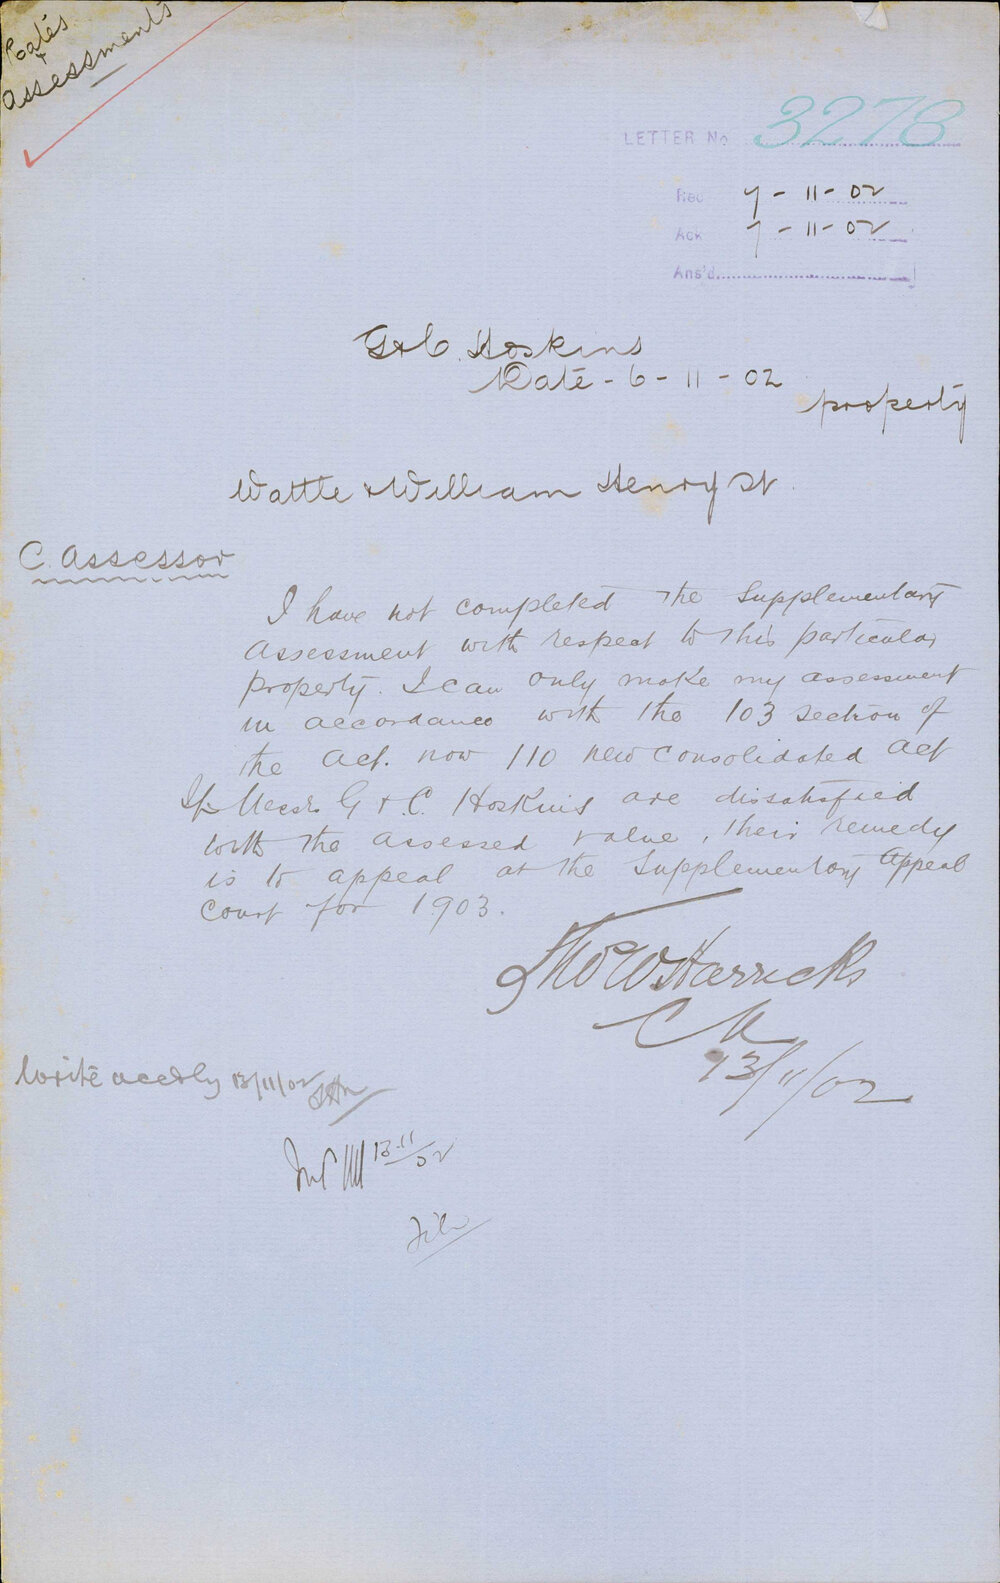 Rates
+
Assessments
LETTER No 3278
Rec 7-11-02
Ack 7-11-02
Ans'd
G & C. Hoskins
Date - 6-11-02
property
Wattle & William Henry St.
C. Assessor
I have not completed the Supplementary
Assessment with respect to this particular
property. I can only make my assessment
in accordance with the 103 section of
the Act. now 110 new Consolidated Act
If Messrs G & C. Hoskins are dissatisfied
with the assessed value, their remedy
is to appeal at the Supplementary Appeal
Court for 1903.
Tho W Harricks
CA
13/11/02
Write accdly 13/11/02
13-11/02
File